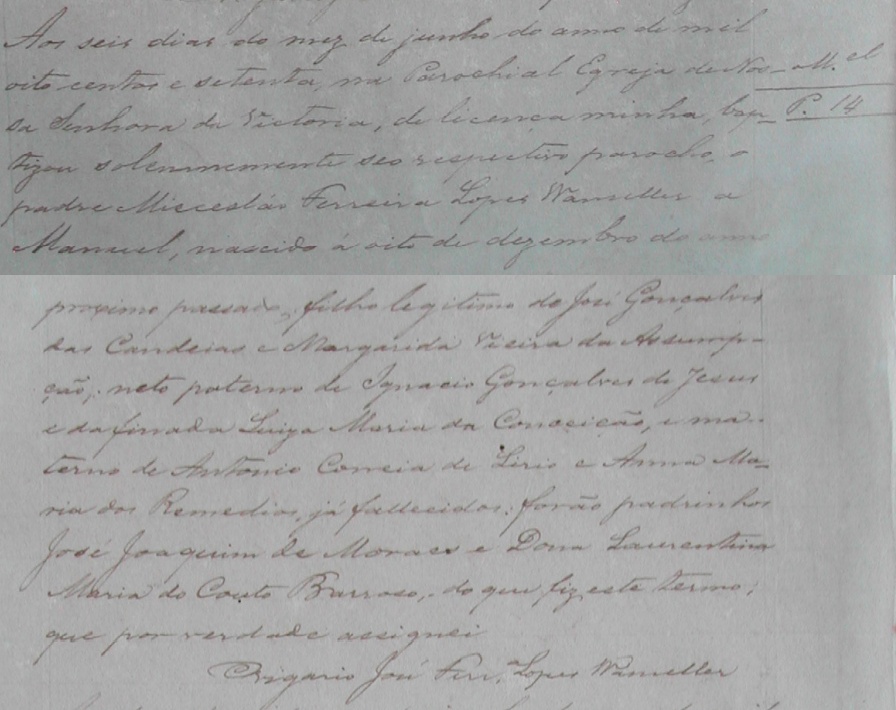 Aos seis dias do mez de junho do anno de mil
oito centos e setenta, na Parochial Egreja de Nos-
M.el
sa Senhora da Victoria, de licença minha, bap-
P. 14
tizou solemnemente seo respectivo parocho, o
padre Miecesláo Ferreira Lopes Wanseller a
Manuel, nascido á oito de dezembro do anno
proximo passado, filho legitimo de José Gonçalves
das Candeias e Margarida Vieira da Assump-
ção, neto paterno de Ignacio Gonçalves de Jesus
e da finada Luiza Maria da Conceição, e ma-
terno de Antonio Correia de Lirio e Anna Ma-
ria dos Remedios, já fallecidos; forão padrinhos
José Joaquim de Moraes e Dona Laurentina
Maria do Couto Barroso, do que fiz este termo,
que por verdade assignei
O Vigario José Ferr.a Lopes Wanseller